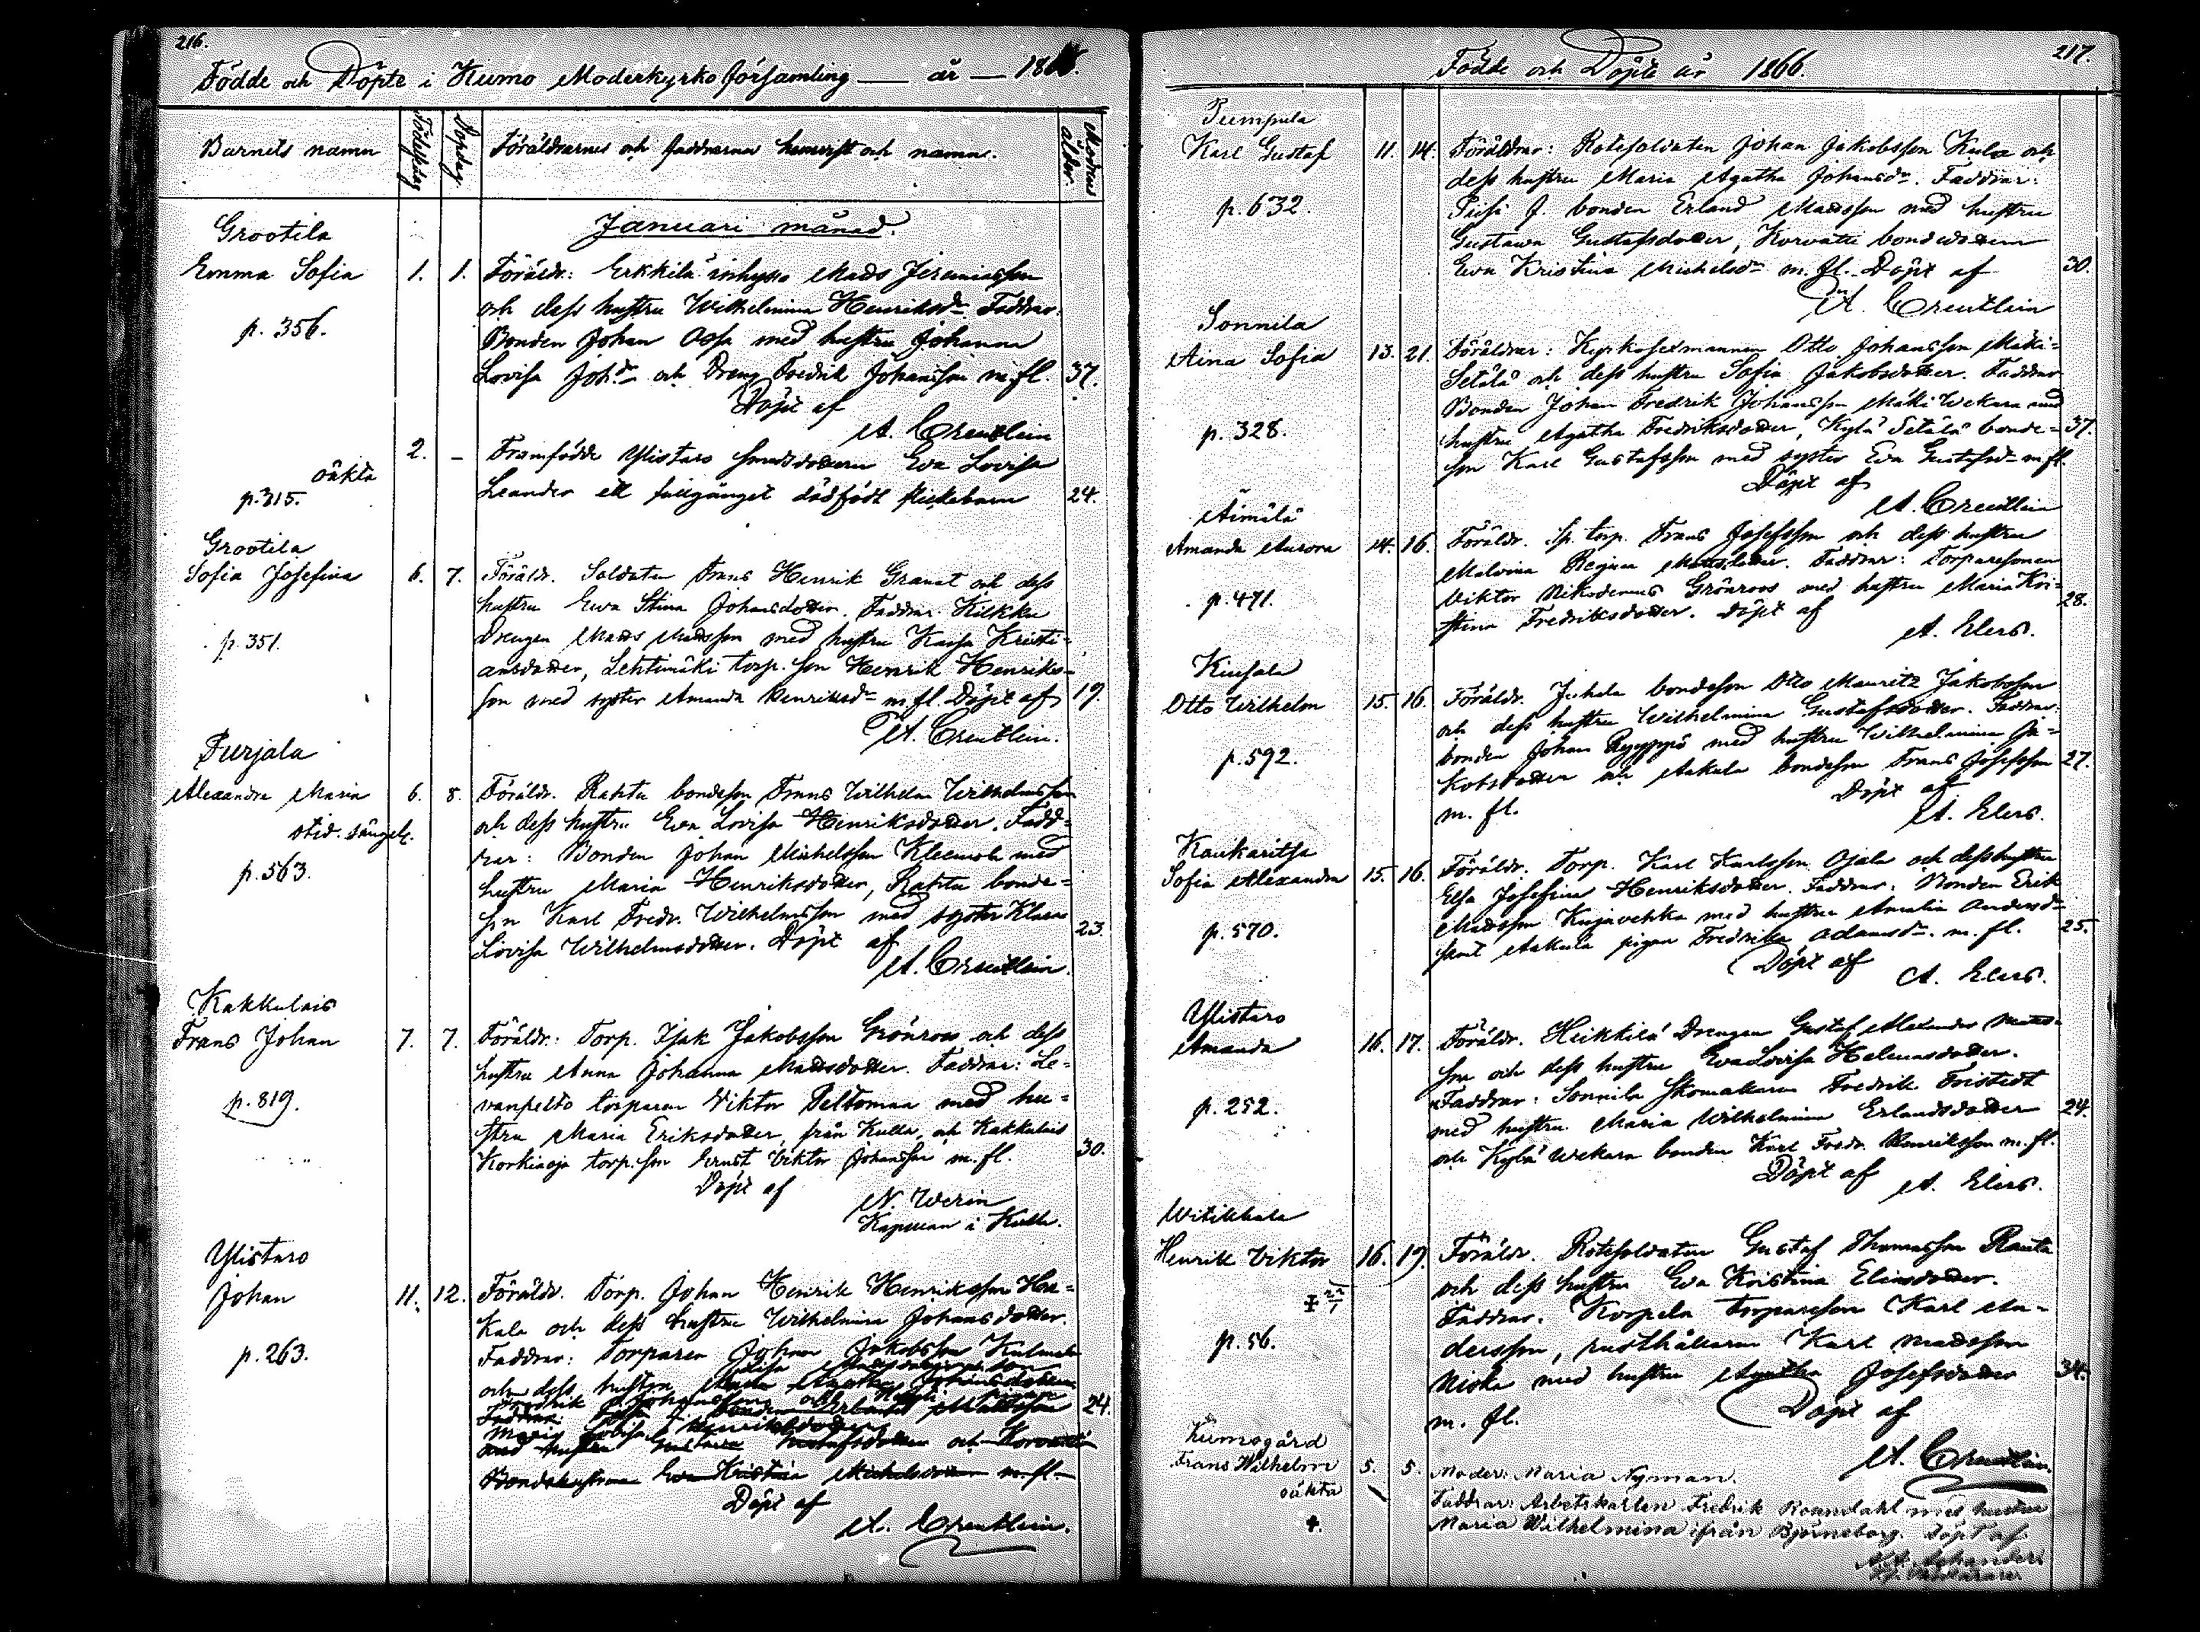 216.
Födde och Döpte i Kumo Moderkyrko församling — år — 1866.
Barnets namn
Födelsedag
Dopdag
Föräldrarnes och faddrarnas hemvist och namn.
Modrens ålder.
Januari månad.
Grootila
Emma Sofia 1. 1. Föräldr: Erkkilä inhyses Mads Jeremiasson
och dess hustru Wilhelmina Henriksdr Faddrar:
p. 356.
Bonden Johan Ossa med hustru Johanna
Lovisa Joh:dr och Dreng Fredrik Johansson m. fl. 37.
Döpt af
A. Creutlein
2. – Framfödde Ylistaro Eva Lovisa
oäkta
p. 315.
Leander ett fullgånget dödfödt flickebarn 24.
Grootila
Sofia Josefina 6. 7. Föräldr. Soldaten Frans Henrik Granat och dess
hustru Ewa Stina Johansdotter. Faddrar. Kilkku
p. 351.
Drengen Mads Madsson med hustru Kaisa Kristi-
ansdotter, Lehtimäki torp. son Henrik Henriks-
son med syster Amanda Henriksdr m. fl. Döpt af 19.
A. Creutlein.
Purjala
Alexandra Maria 6. 8. Föräldr. Rahtu bondeson Frans Wilhelm Wilhelmsson
och dess hustru Eva Lovisa Henriksdotter. Fadd-
p. 563.
rar: Bonden Johan Michelsson Kleemola med
hustru Maria Henriksdotter, Rahtu bonde-
son Karl Fredr. Wilhelmsson med syster Klara 23.
Lovisa Wilhelmsdotter. Döpt af
A. Creutlein.
Kakkulais
Frans Johan 7. 7. Föräldr: Torp. Isak Jakobsson Grönroos och dess
hustru Anna Johanna Madsdotter. Faddrar: Le-
p. 819.
vanpelto torparen Viktor Peltomaa med hu-
stru Maria Eriksdotter, från Kulla, och Kakkulais
Korkiaoja torp. son Ernst Viktor Johansson m. fl. 30.
Döpt af
N. Werin
Kapellan i Kulla.
Ylistaro
Johan 11. 12. Föräldr. Torp. Johan Henrik Henriksson Ha-
kala och dess hustru Wilhelmina Johansdotter.
p. 263.
Faddrar: Torparen Johan Jakobsson
och dess hustru
24.
Eva Kristina Michelsdotter m. fl.
Döpt af
A. Creutlein.
217.
Födde och Döpte år 1866.
Pumpula
Karl Gustaf 11. 14. Föräldrar: Rotesoldaten Johan Jakobsson Kula och
dess hustru Maria Agatha Johansdr. Faddrar:
p. 632.
J. bonden Erland Madsson med hustru
Gustawa Gustafsdotter, Korvatti bondedottern
Ewa Kristina Michelsdr m. fl. Döpt af 30.
A. Creutlein
Sonnila
Aina Sofia 13. 21. Föräldrar: Kyrkosexmannen Otto Johansson Mäki-
Setälä och dess hustru Sofia Jakobsdotter. Faddrar
Bonden Johan Fredrik Johansson Mäki Wekara med
p. 328.
hustru Agatha Fredriksdotter, Kylä Setälä bonde- 37.
son Karl Gustafsson med syster Eva Gustafsdr m. fl.
Döpt af
A. Creutlein
Äimälä
Amanda Aurora 14. 16. Föräldr. Sp. torp. Frans Josefsson och dess hustru
Malvina Regina Madsdotter. Faddrar: Torparesonen
p. 471.
Viktor Nikodemus Grönroos med hustru Maria Kri- 28.
stina Fredriksdotter. Döpt af
A. Elers.
Kiusala
Otto Wilhelm 15. 16. Föräldr. Juhala bondeson Otto Mauritz Jakobsson
och dess hustru Wilhelmina Gustafsdotter. Faddrar:
p. 592.
bonden Johan Ryyppyö med hustru Wilhelmina Ja-
kobsdotter och Aakula bondeson Frans Josefsson 27.
m. fl.
Döpt af
A. Elers.
Kaukaritsa
Sofia Alexandra 15. 16. Föräldr. Torp. Karl Karlsson Ojala och dess hustru
Elsa Josefina Henriksdotter. Faddrar: Bonden Erik
p. 570.
Madsson Kujavehka med hustru Amalia Andersdr
samt Aakula pigan Fredrika Adamsdr. m. fl. 25.
Döpt af
A. Elers.
Ylistaro
Amanda 16. 17. Föräldr. Heikkilä Drengen Gustaf Alexander Mads-
son och dess hustru Eva Lovisa Helenasdotter.
p. 252.
Faddrar: Sonnila Skomakaren Fredrik Fristedt
med hustru Maria Wilhelmina Erlandsdotter 24.
och Kylä Wekara bonden Karl Fredr. Henriksson m. fl.
Döpt af
A. Elers.
Witikkala
Henrik Viktor 16. 19. Föräldr. Rotesoldaten Gustaf Thomasson Rauta
och dess hustru Eva Kristina Eliasdotter.
p. 56.
Faddrar. Korpela Torpareson Karl An-
dersson, rusthållaren Karl Madsson
Niska med hustru Agatha Josefsdotter 34.
m. fl.
Döpt af
A. Creutlein.
Kumogård
Frans Wilhelm 5. 5. Moder: Maria Nyman.
oäkta
Faddrar: Arbetskarlen Fredrik Rosendahl med hustru
Maria Wilhelmina ifrån Björneborg. Döpt af